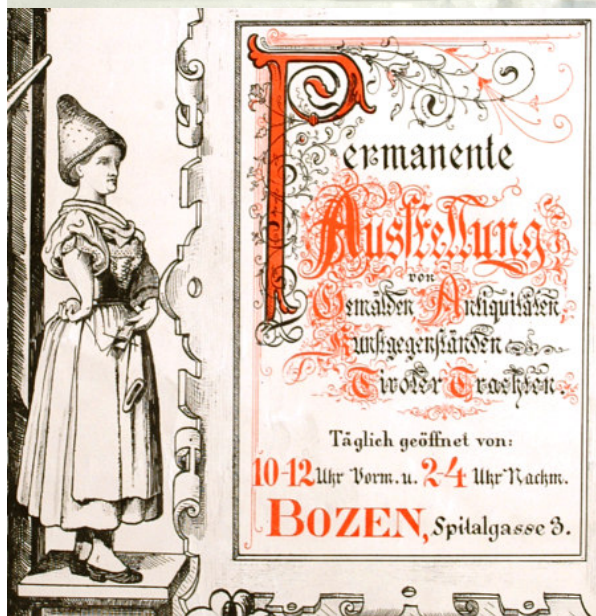 Permanente
Ausstellung
von
Gemälden Antiquitäten,
Kunstgegenständen
Tiroler Trachten.
Täglich geöffnet von:
10-12 Uhr Vorm. u. 2-4 Uhr Nachm.
BOZEN, Spitalgasse 3.